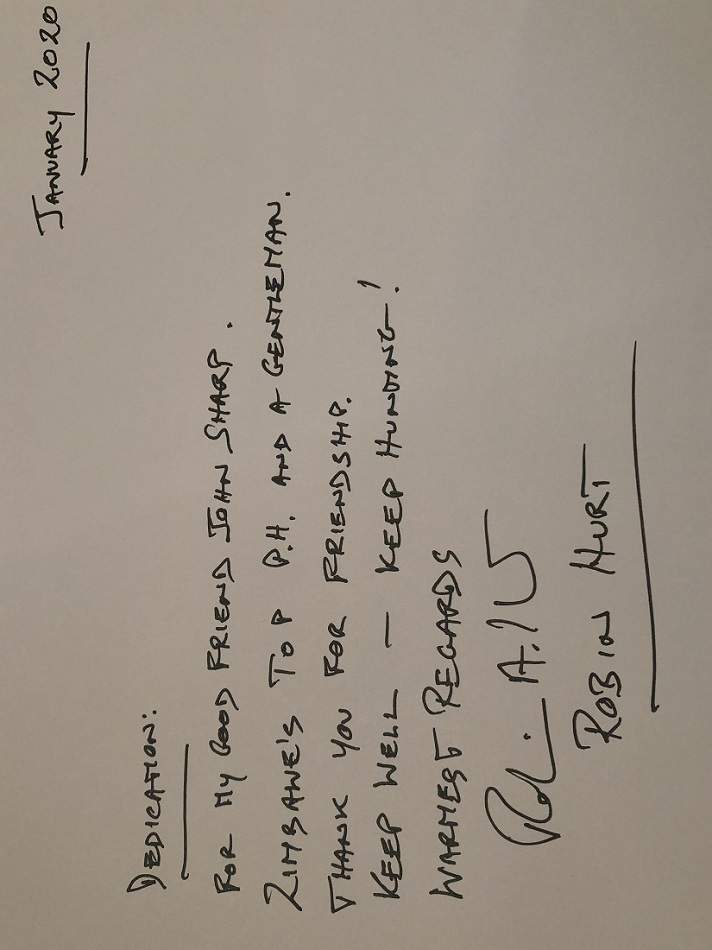 JANUARY 2020
DEDICATION:
FOR MY GOOD FRIEND JOHN SHARP.
ZIMBAWE'S TOP P.H. AND A GENTLEMAN.
THANK YOU FOR FRIENDSHIP.
KEEP WELL — KEEP HUNTING!
WARMEST REGARDS
Robin A. Hurt
ROBIN HURT